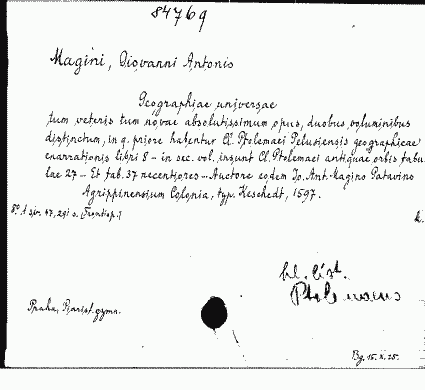 84769
Magini, Giovanni Antonio
Geographiae universae
tum veteris tum novae absolutissimum opus, duobus voluminibus
distinctum, in q. priore habentur Cl. Ptolemaei Pelusiensis geographicae
enarrationis libri 8 – in sec. vol. insunt Cl. Ptolemaei antiquae orbis tabu
lae 27 – Et tab. 37 recentiores – Auctore eodem Jo. Ant. Magino Patavino
Agrippinensium Colonia, typ. Keschedt, 1597.
8º. 47, 291 s. [Frontisp.]
k.
hl. list.
Ptolemaeus
Praha, Piarist. gymn.
Bg. 15.X.25.